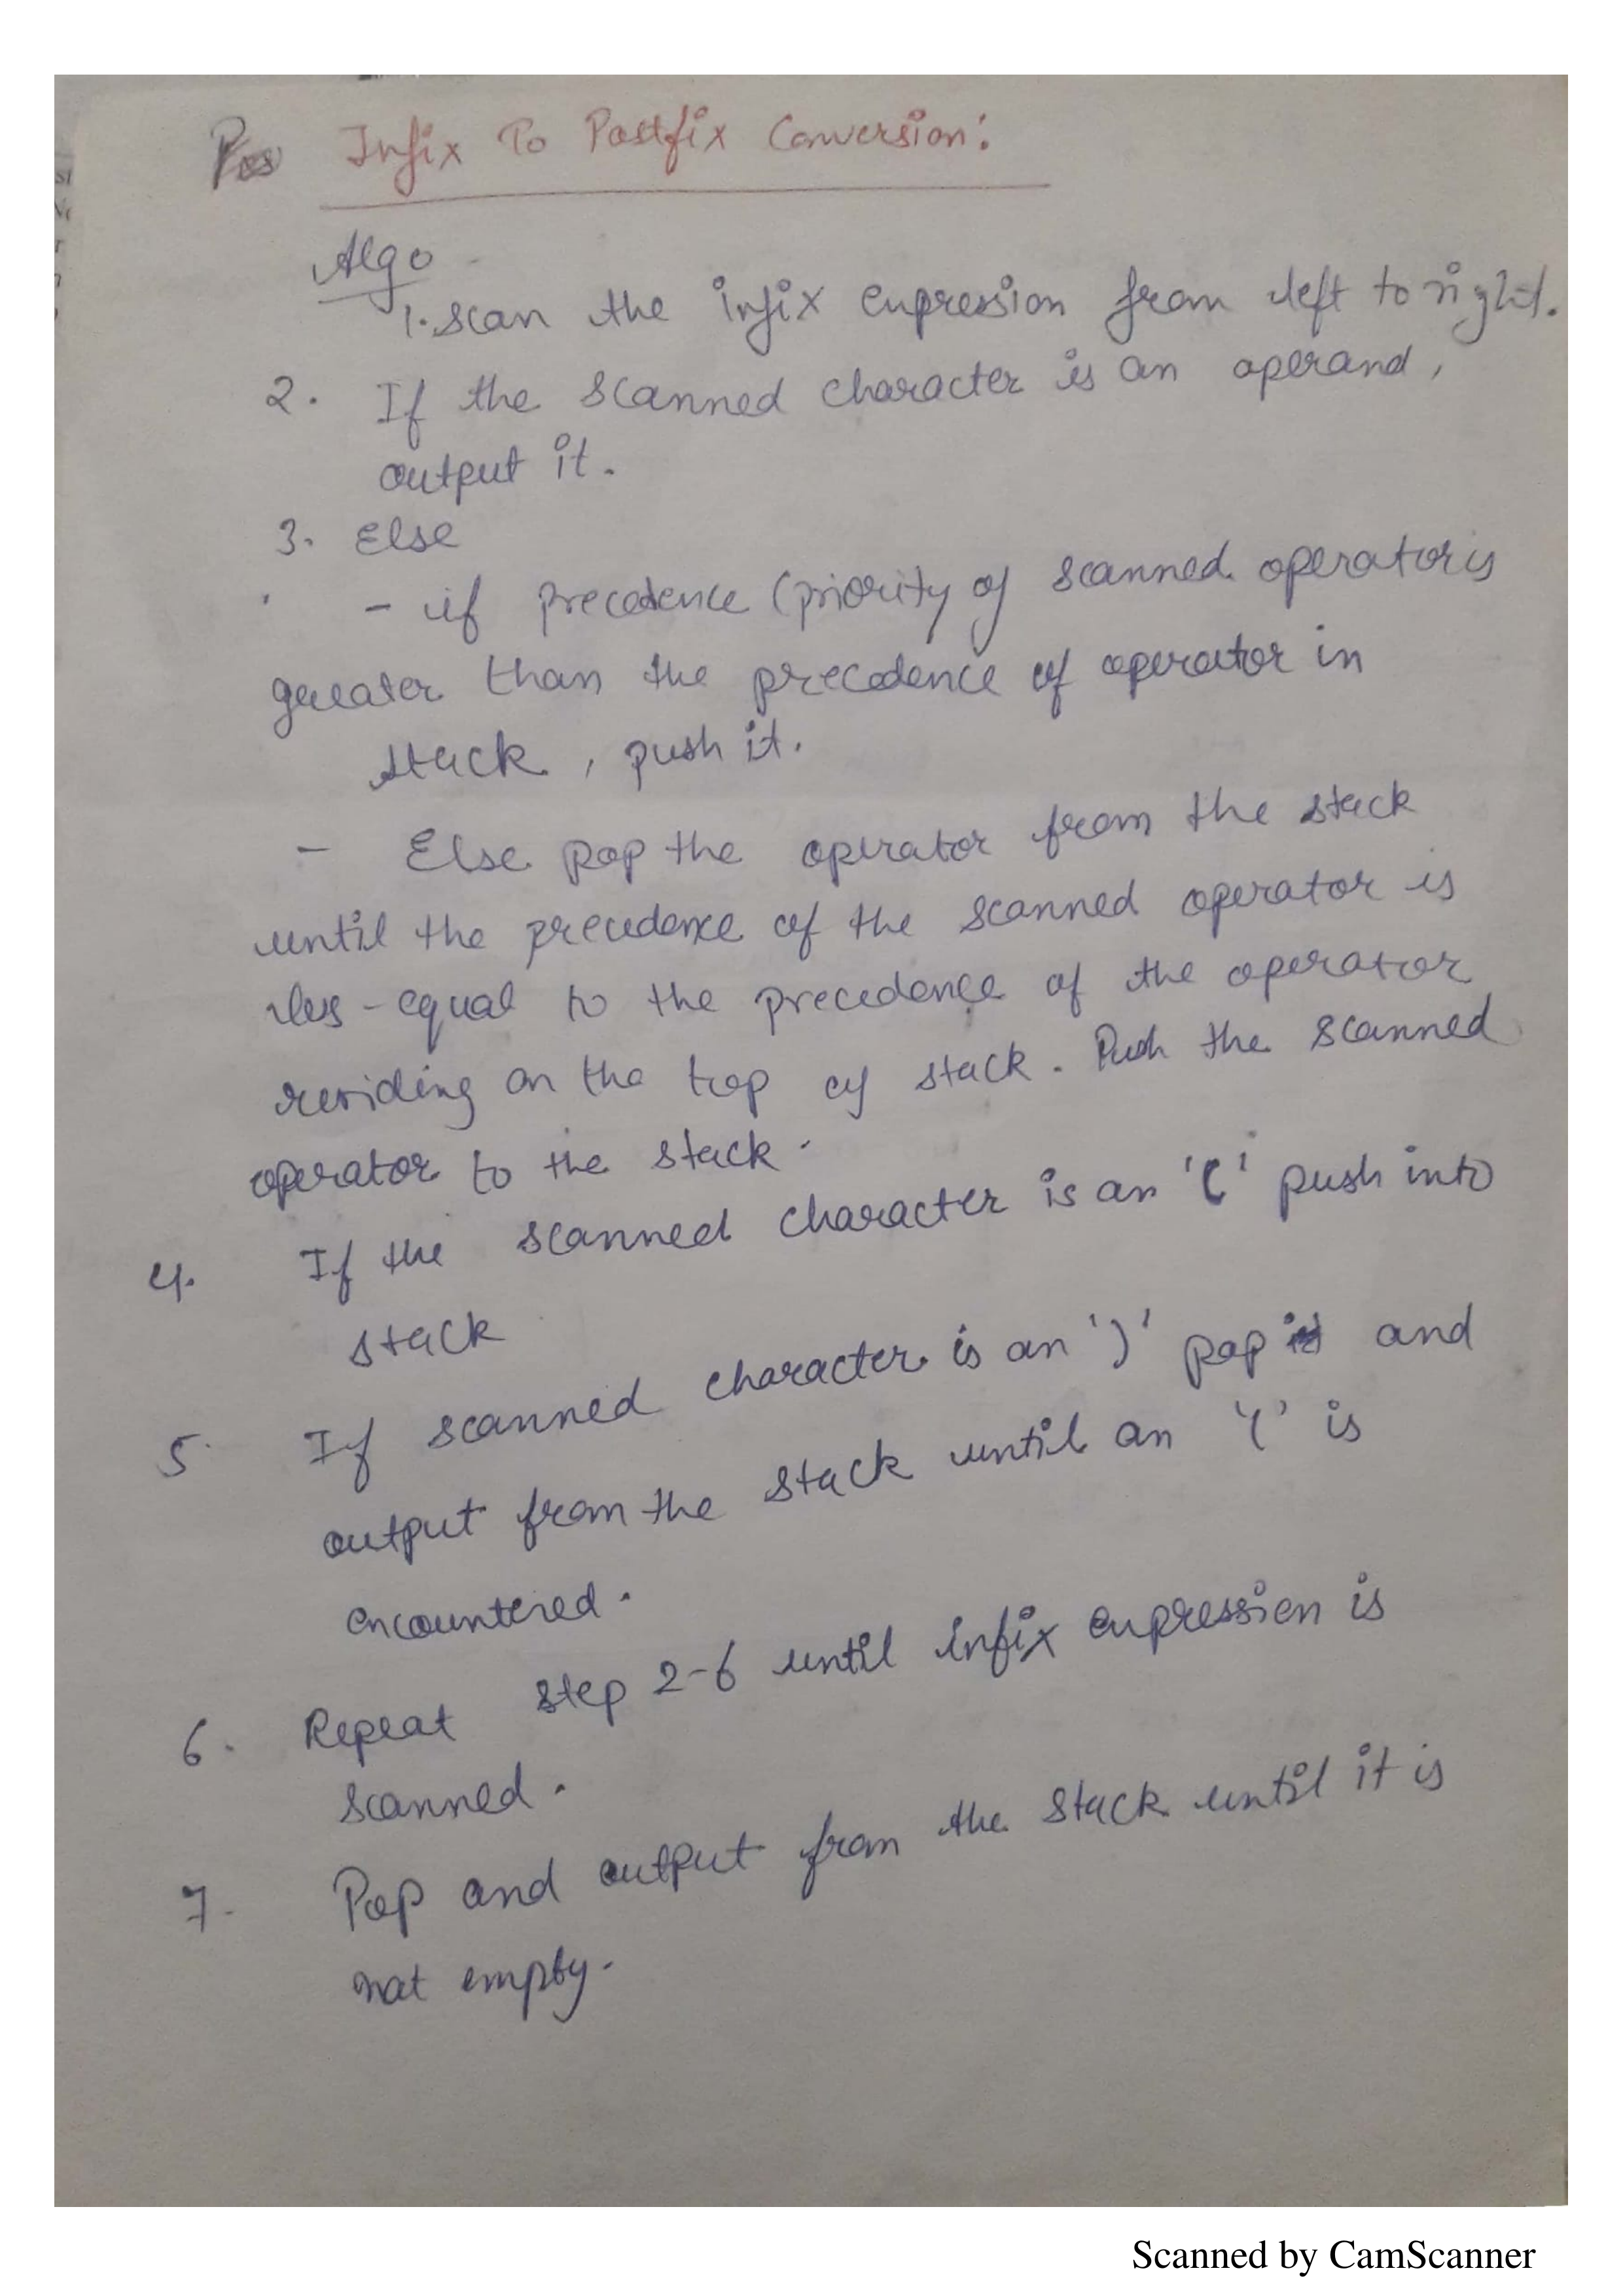 Infix To Postfix Conversion:
Algo -
1. scan the infix expression from left to right.
2. If the scanned character is an operand,
output it.
3. Else
- if precedence (priority of scanned operator is
greater than the precedence of operator in
stack, push it.
- Else pop the operator from the stack
until the precedence of the scanned operator is
less-equal to the precedence of the operator
residing on the top of stack. Push the scanned
operator to the stack.
4. If the scanned character is an '(' push into
stack
5. If scanned character is an ')' pop and
output from the stack until an '(' is
encountered.
6. Repeat step 2-6 until infix expression is
scanned.
7. Pop and output from the stack until it is
not empty.
Scanned by CamScanner